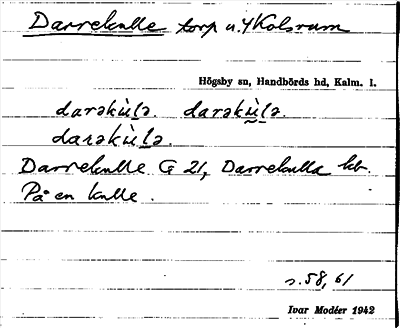 Darrekulle torp u. Y Kolsrum
Högsby sn, Handbörds hd, Kalm. l.
darəkùlə. darəkùlə.
darəkùlə.
Darrekulle G 21, Darrekulla kb.
På en kulle.
s. 58, 61
Ivar Modéer 1942